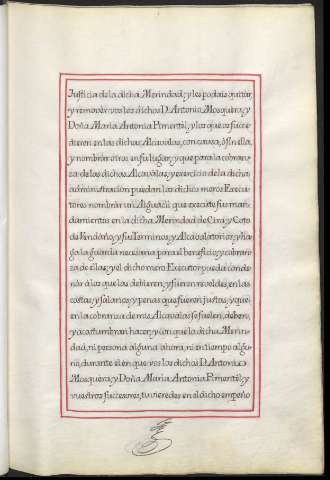 Justicia de la dicha Merindad; y les podais quitar,
y remover vos los dichos D. Antonio Mosquera, y
Doña Maria Antonia Pimentel, y los que os succe-
dieren en las dichas Alcavalas, con causa, ò sin ella,
y nombrar otros en su lugar; y que para la cobran-
za de las dichas Alcavalas, y exercicio de la dicha
administracion puedan los dichos meros Execu-
tores nombrar un Alguacil que execute sus man-
damientos en la dicha Merindad de Cira, y Coto
de Vendaño, y sus Terminos, y Alcavalatorios; y ha-
ga la guarda necesaria para el beneficio, y cobran-
za de ellas; y el dicho mero Executor pueda conde-
nar à los que las debieren, y fueren reveldes, en las
costas, y salarios, y penas que fueren justas, y que
en la cobranza de mis Alcavalas se suelen, deben,
y acostumbran hacer; y sin que la dicha Merin-
dad, ni persona alguna ahora, ni en tiempo algu-
no, durante el en que vos los dichos D. Antonio
Mosquera, y Doña Maria Antonia Pimentel, y
vuestros successores, tuvieredes en el dicho empeño